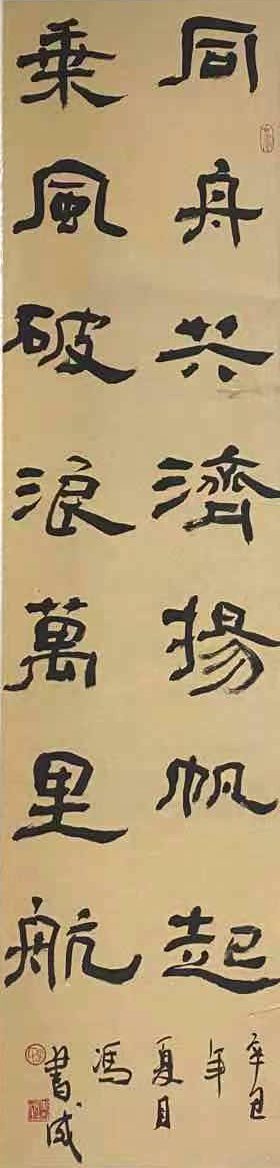 同舟共濟揚帆起
乘風破浪萬里航
辛丑
年
夏月
馮
書成